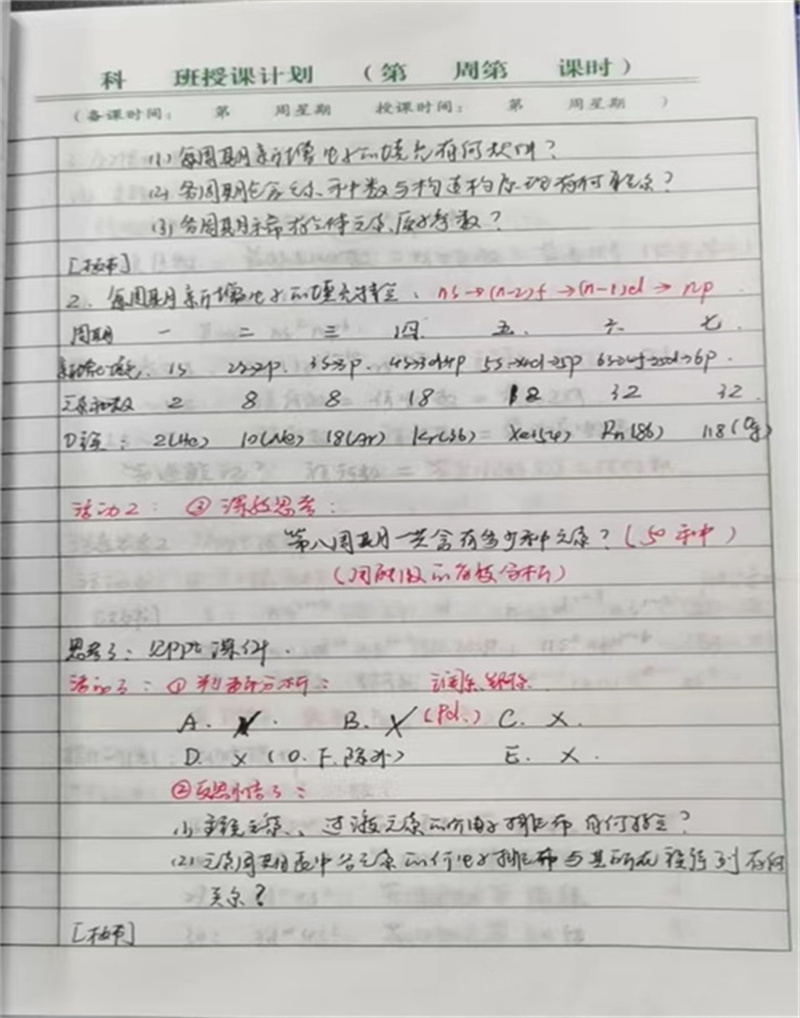 科 班授课计划 (第 周第 课时)
(备课时间: 第 周星期 授课时间: 第 周星期 )
(1) 每周期新增电子的填充有何规律?
(2) 各周期包含元素种数与构造原理有何联系?
(3) 各周期稀有气体元素原子序数?
[板书]
2. 每周期新增电子的填充特征: ns→(n-2)f→(n-1)d→np
周期 一 二 三 四 五 六 七
1s 2s→2p 3s→3p 4s→3d→4p 5s→4d→5p 6s→4f→5d→6p
元素种数 2 8 8 18 18 32 32
0族: 2(He) 10(Ne) 18(Ar) Kr(36) Xe(54) Rn(86) 118(Og)
活动2: ③ 深较思考:
第八周期一共含有多少种元素? (50种)
(用所学的方法分析)
思考3: 见PPt课件.
活动3: ① 判断与分析:
A. X. B. X (Pd.) C. X.
D. X (O.F.除外) E. X.
②反思小结3:
(1) 主族元素、过渡元素的价电子排布有何特征?
(2) 元素周期表中各元素的价电子排布与其所在族序列有何
关系?
[板书]